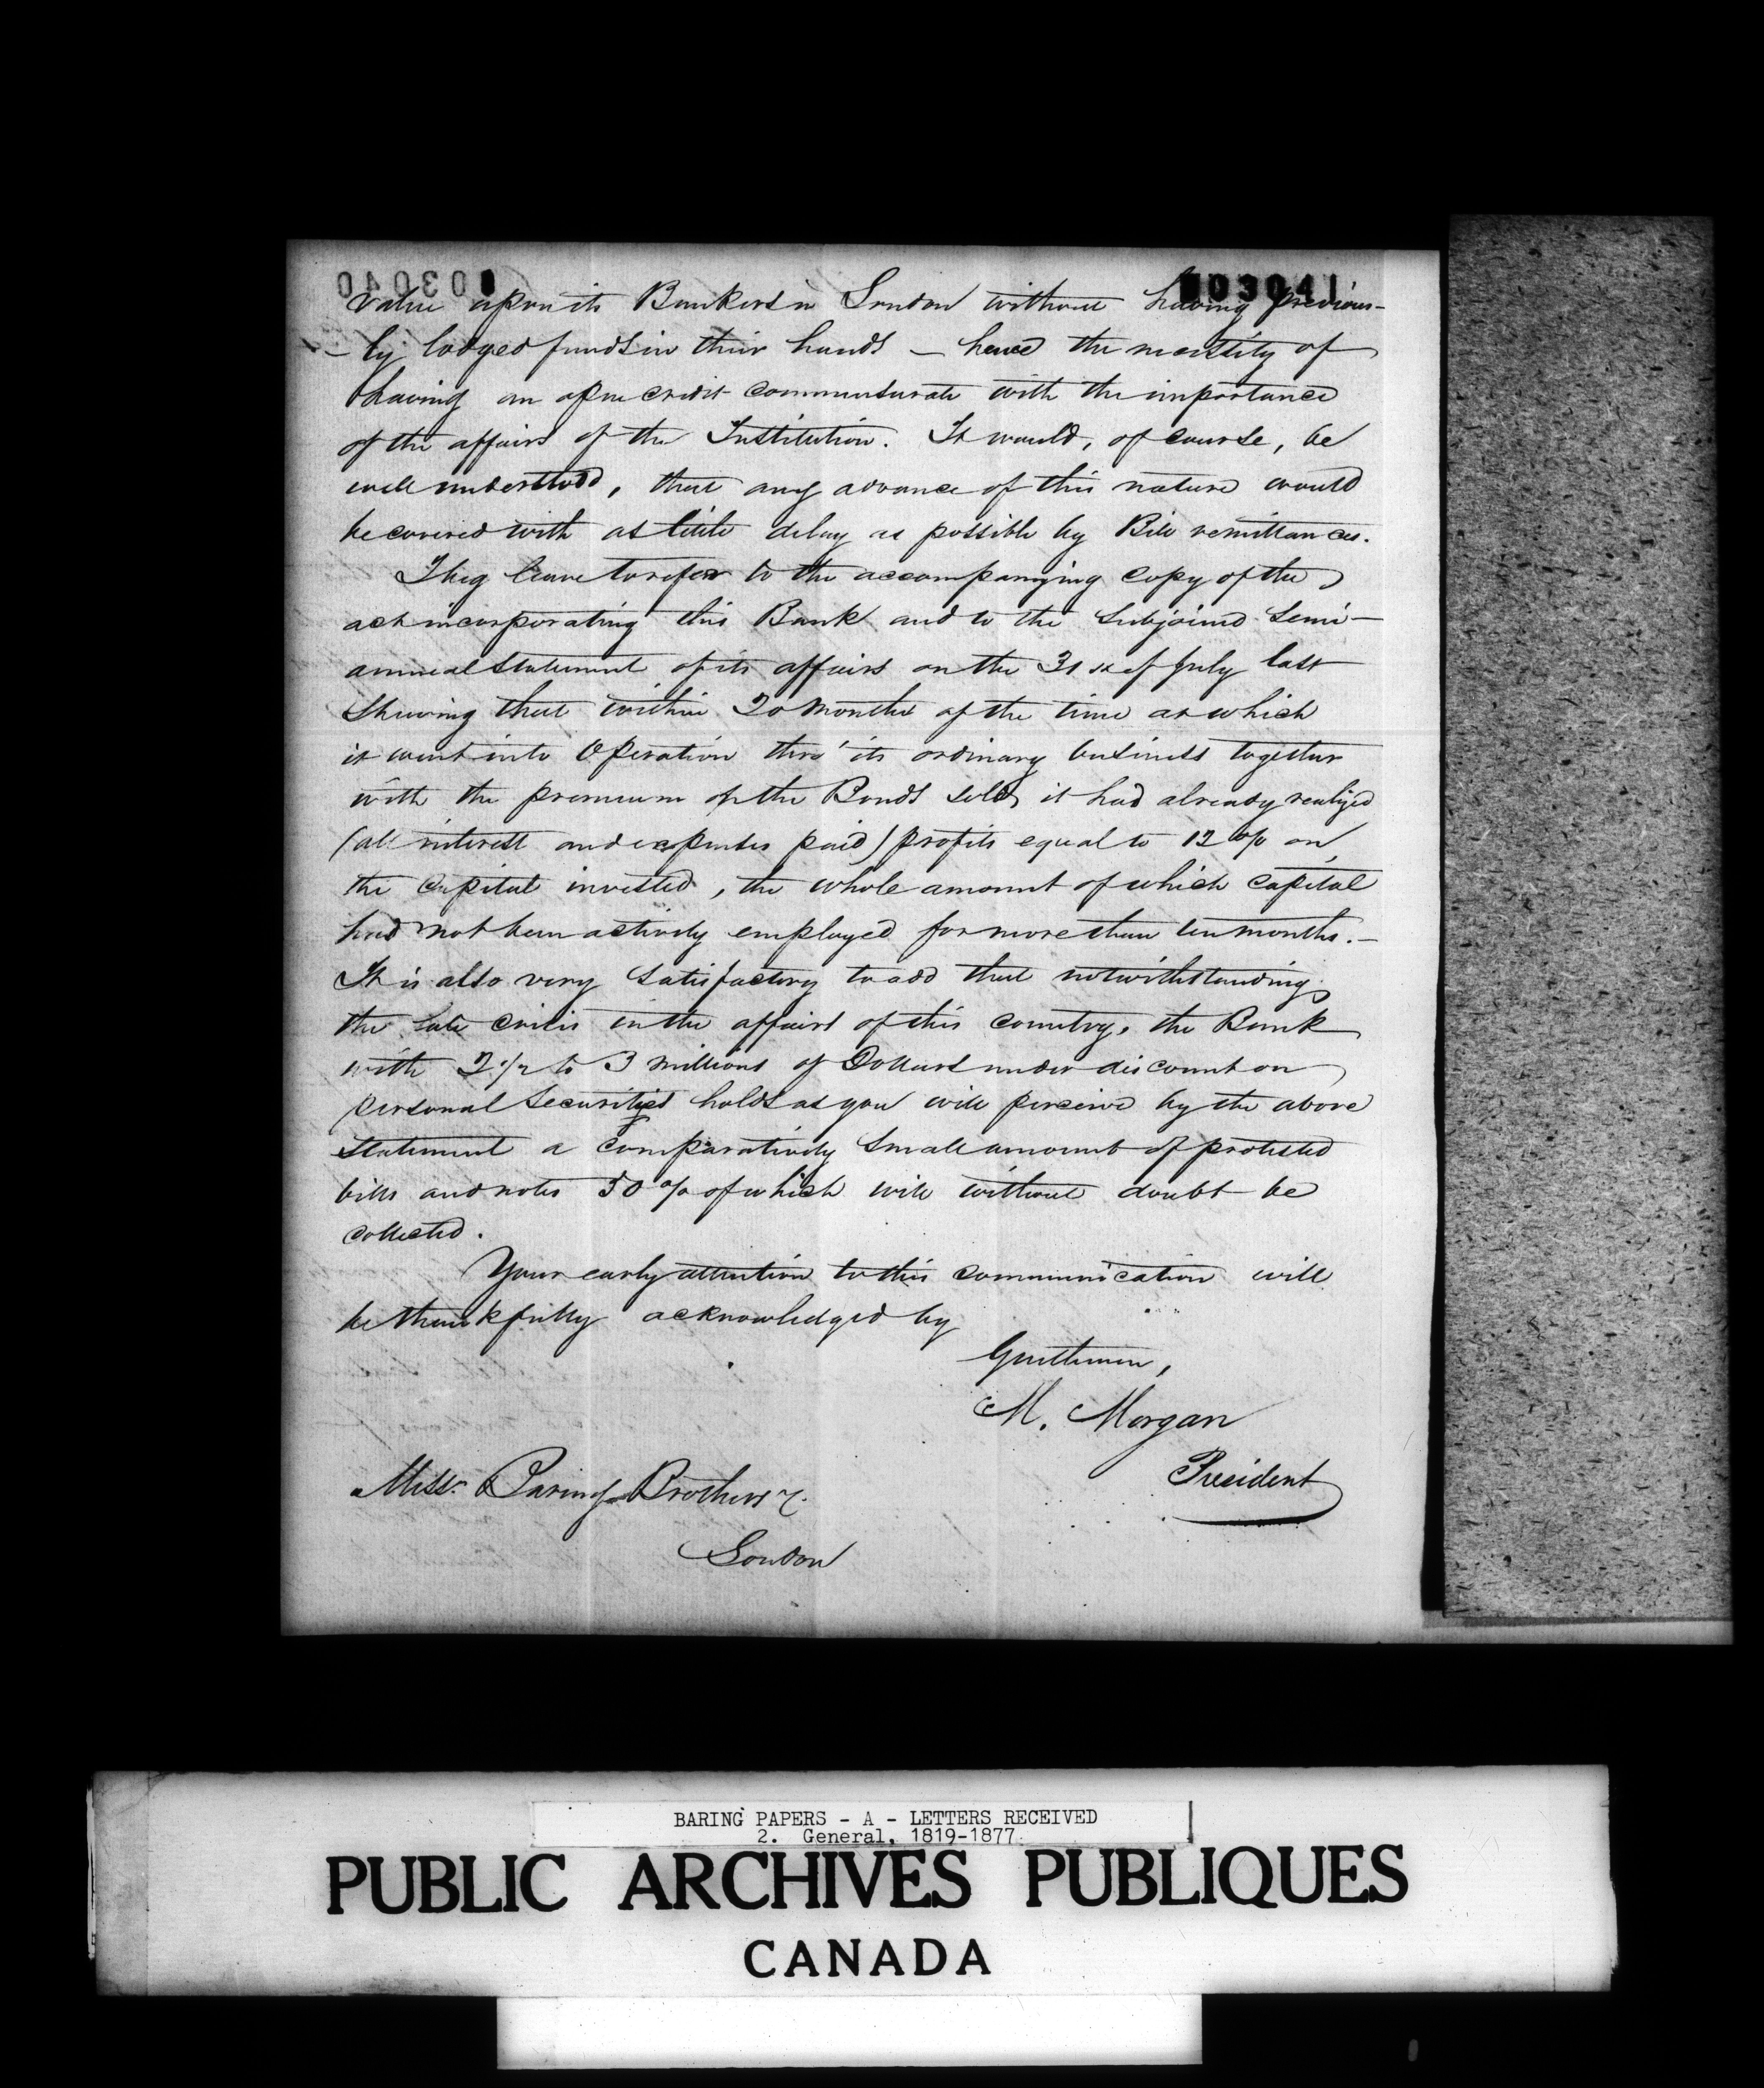 003040
003041
value upon its Bankers in London without having previous-
- ly lodged funds in their hands - hence the necessity of
having an open credit commensurate with the importance
of the affairs of the Institution. It would, of course, be
well understood, that any advance of this nature would
be covered with as little delay as possible by Bill remittances.
I beg leave to refer to the accompanying copy of the
act incorporating this Bank and to the subjoined semi-
annual statement of its affairs on the 31st of July last
shewing that within 20 months of the time at which
it went into operation thro' its ordinary business together
with the premium of the Bonds sold, it had already realized
(all interest and expenses paid) profits equal to 12 % on
the capital invested, the whole amount of which capital
had not been actively employed for more than ten months. -
It is also very satisfactory to add that notwithstanding
the late crisis in the affairs of this country, the Bank
with 2 1/2 to 3 millions of Dollars under discount on
personal securities holds as you will perceive by the above
statement a comparatively small amount of protested
bills and notes 50 % of which will without doubt be
collected.
Your early attention to this communication will
be thankfully acknowledged by
Gentlemen,
M. Morgan
President
Messrs. Baring Brothers &.
London
BARING PAPERS - A - LETTERS RECEIVED
2. General, 1819-1877
PUBLIC ARCHIVES PUBLIQUES
CANADA